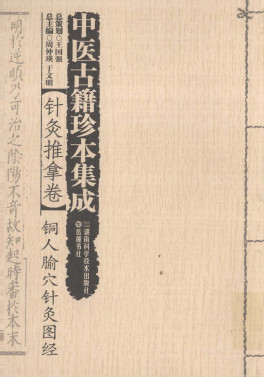 中医古籍珍本集成
总策划◎王国强
总主编◎周仲瑛 于文明
【针灸推拿卷】
铜人腧穴针灸图经
湖南科学技术出版社
岳麓书社
明於逆順乃可治之陰陽不奇故知起時審於本末